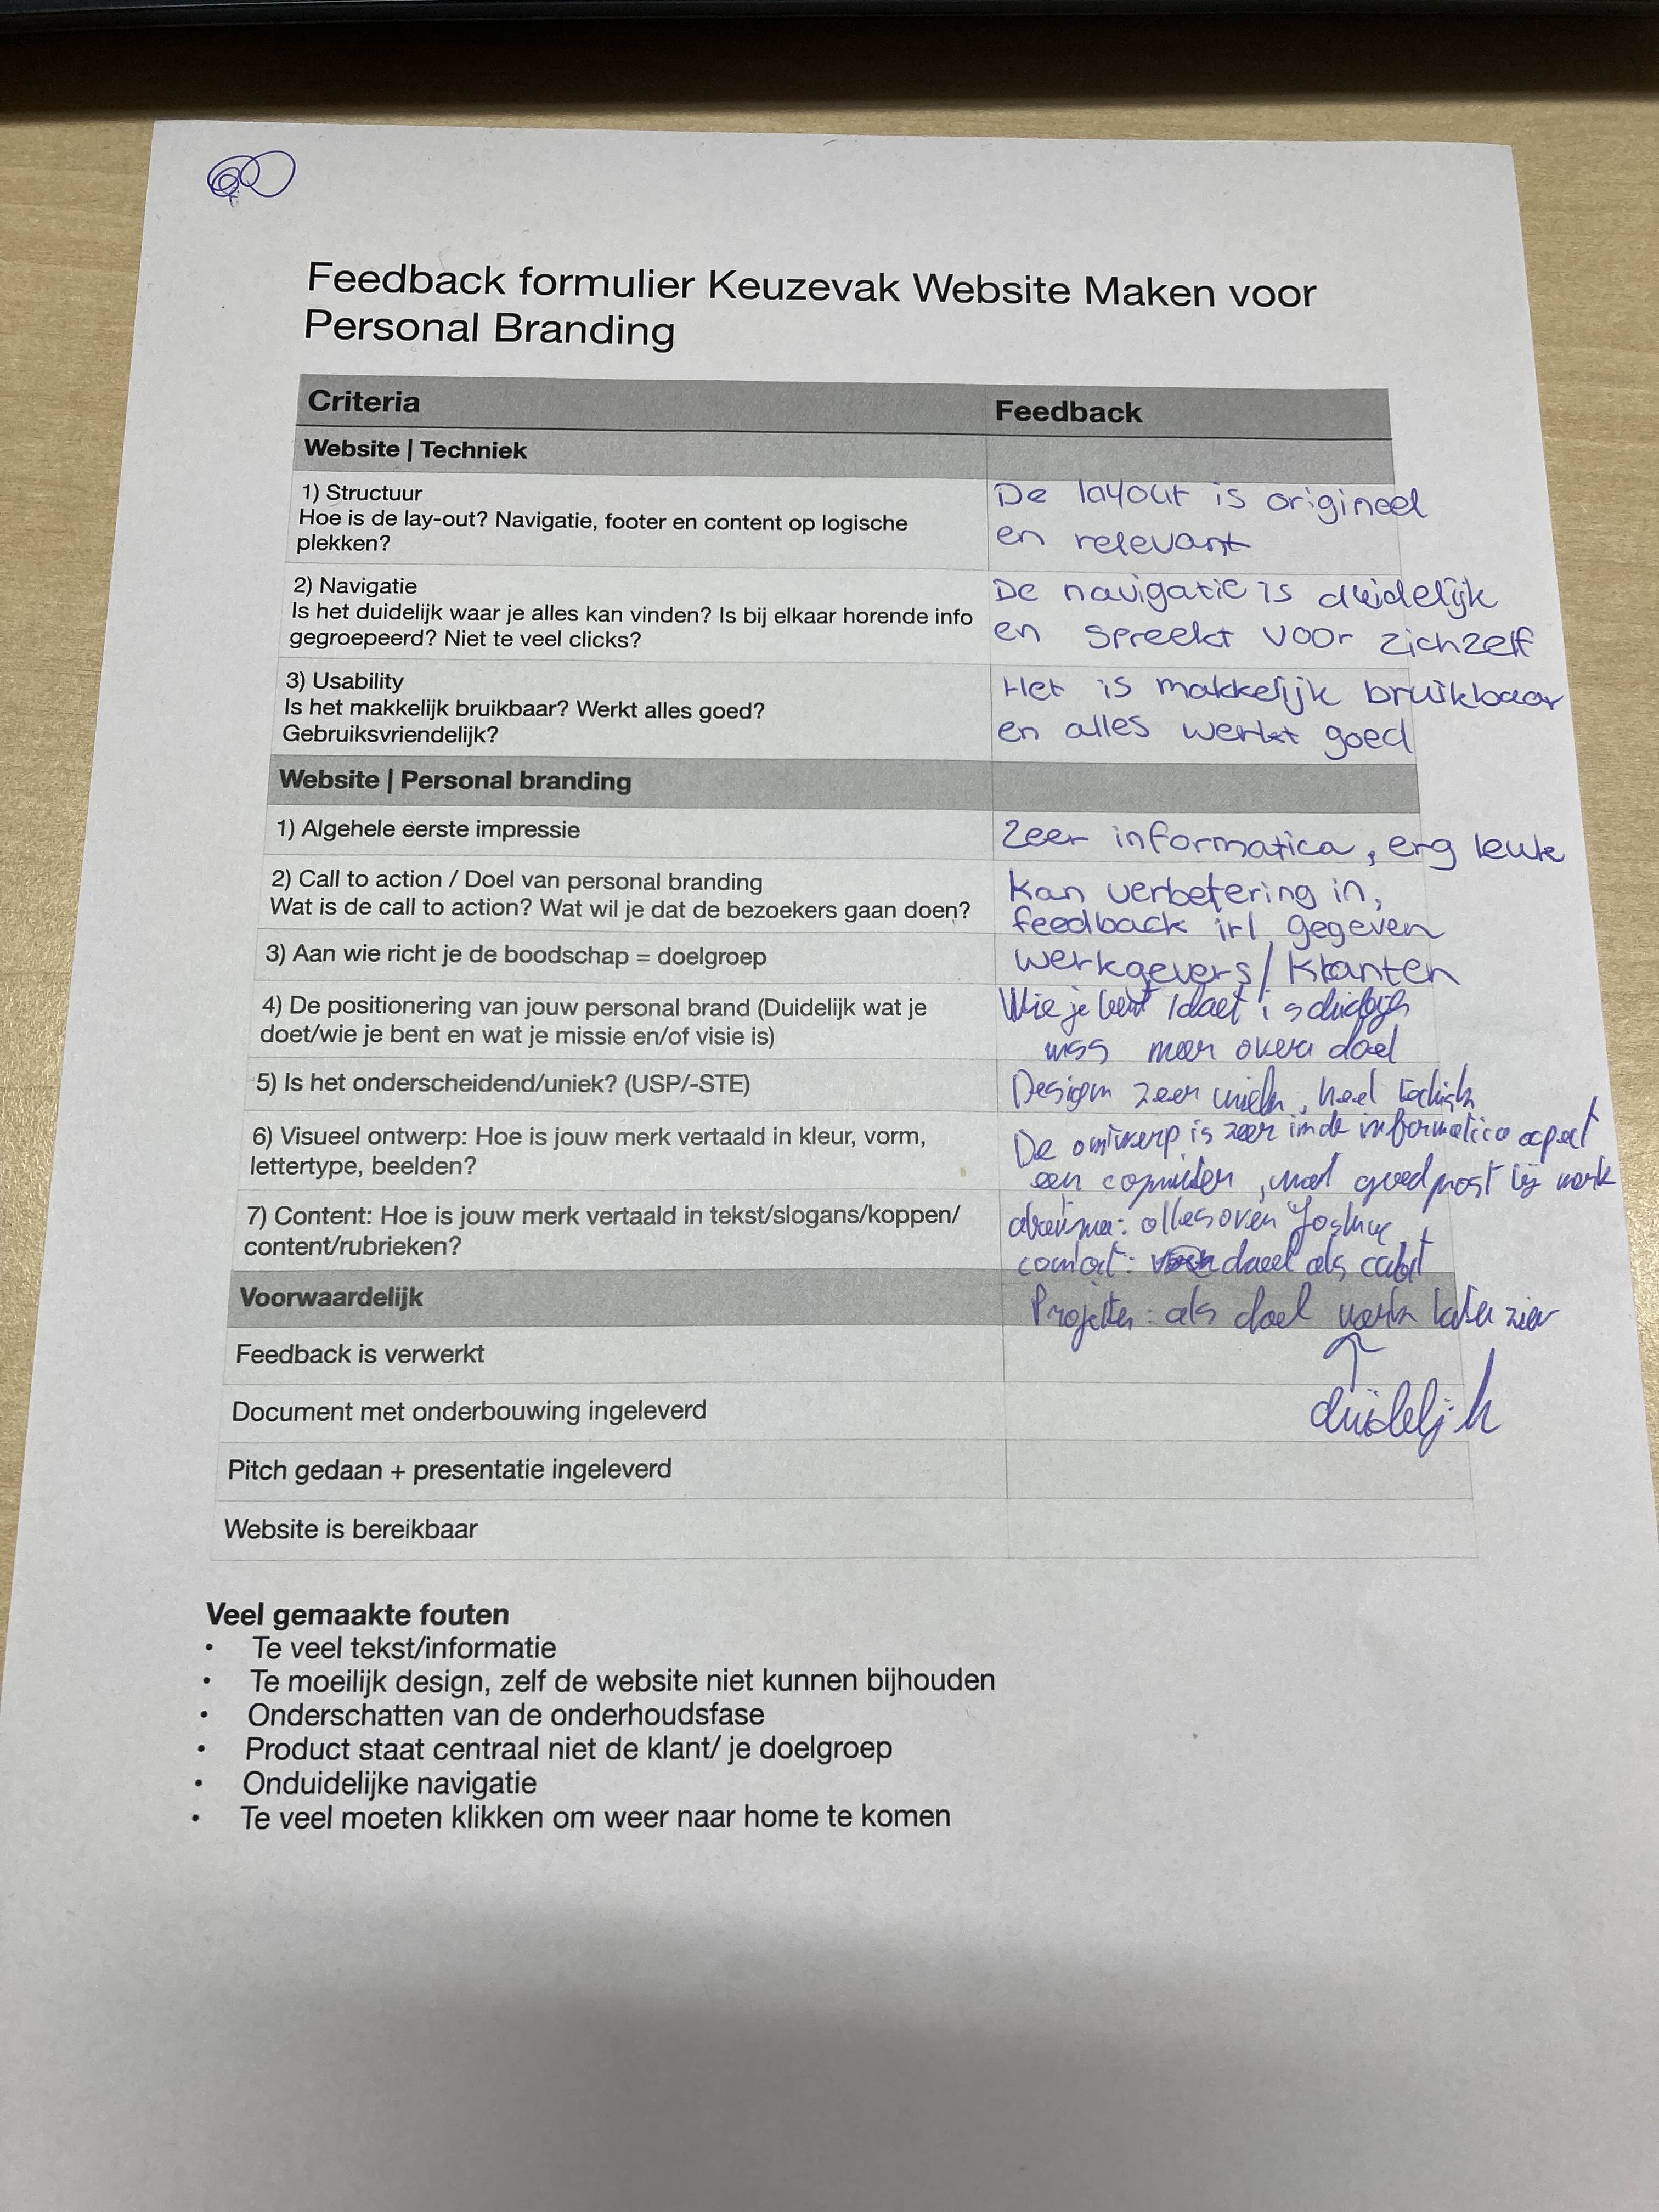 Feedback formulier Keuzevak Website Maken voor
Personal Branding
Criteria
Feedback
Website | Techniek
1) Structuur
Hoe is de lay-out? Navigatie, footer en content op logische
plekken?
De layout is origineel
en relevant
2) Navigatie
Is het duidelijk waar je alles kan vinden? Is bij elkaar horende info
gegroepeerd? Niet te veel clicks?
De navigatie is duidelijk
en spreekt voor zichzelf
3) Usability
Is het makkelijk bruikbaar? Werkt alles goed?
Gebruiksvriendelijk?
Het is makkelijk bruikbaar
en alles werkt goed
Website | Personal branding
1) Algehele eerste impressie
Zeer informatica, erg leuk
2) Call to action / Doel van personal branding
Wat is de call to action? Wat wil je dat de bezoekers gaan doen?
Kan verbetering in,
feedback irl gegeven
3) Aan wie richt je de boodschap = doelgroep
werkgevers/klanten
4) De positionering van jouw personal brand (Duidelijk wat je
doet/wie je bent en wat je missie en/of visie is)
Wie je bent / doet is
meer over doel
5) Is het onderscheidend/uniek? (USP/-STE)
Design zeer uniek, heel
6) Visueel ontwerp: Hoe is jouw merk vertaald in kleur, vorm,
lettertype, beelden?
De ontwerp is zeer in de informatica aspect
een goed past bij werk
7) Content: Hoe is jouw merk vertaald in tekst/slogans/koppen/
content/rubrieken?
alles over
als
Voorwaardelijk
als doel werk laten zien
Feedback is verwerkt
duidelijk
Document met onderbouwing ingeleverd
Pitch gedaan + presentatie ingeleverd
Website is bereikbaar
Veel gemaakte fouten
• Te veel tekst/informatie
• Te moeilijk design, zelf de website niet kunnen bijhouden
• Onderschatten van de onderhoudsfase
• Product staat centraal niet de klant/ je doelgroep
• Onduidelijke navigatie
• Te veel moeten klikken om weer naar home te komen